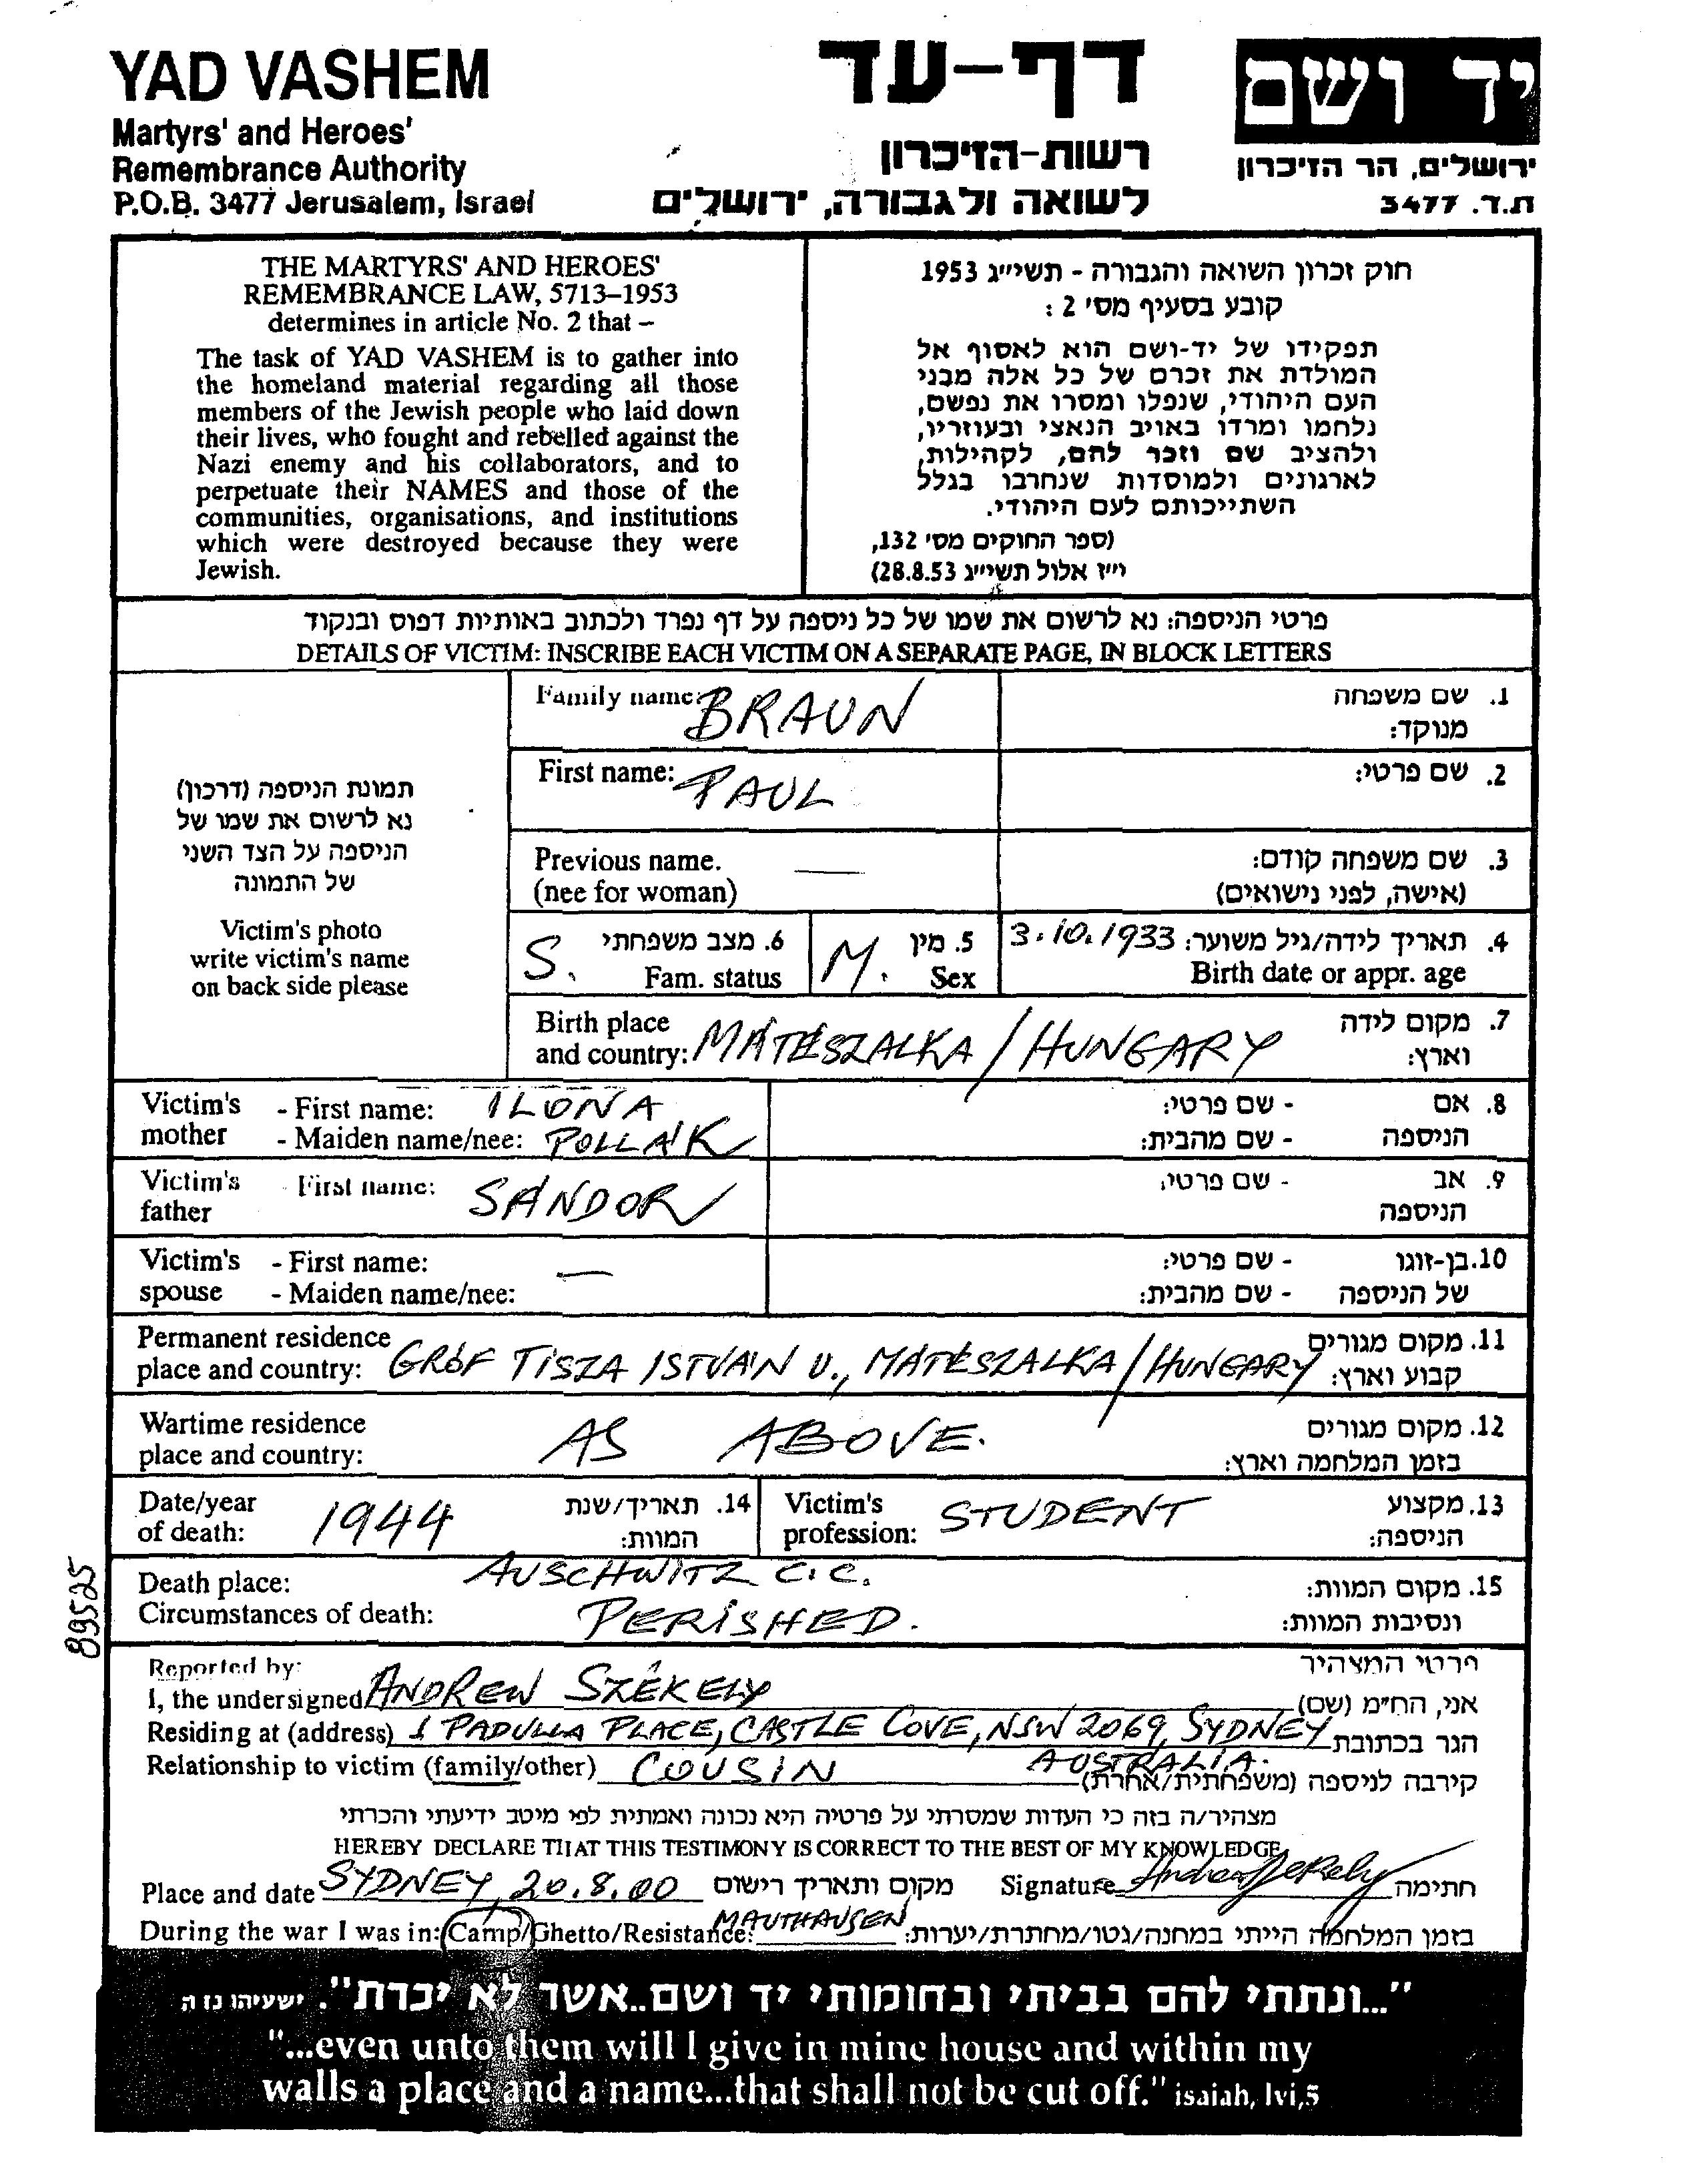 YAD VASHEM
Martyrs' and Heroes'
Remembrance Authority
P.O.B. 3477 Jerusalem, Israel
דף-עד
רשות-הזיכרון
לשואה ולגבורה, ירושלים
יד ושם
ירושלים, הר הזיכרון
ת.ד. 3477
THE MARTYRS' AND HEROES'
REMEMBRANCE LAW, 5713–1953
determines in article No. 2 that –
The task of YAD VASHEM is to gather into
the homeland material regarding all those
members of the Jewish people who laid down
their lives, who fought and rebelled against the
Nazi enemy and his collaborators, and to
perpetuate their NAMES and those of the
communities, organisations, and institutions
which were destroyed because they were
Jewish.
חוק זכרון השואה והגבורה - תשי״ג 1953
קובע בסעיף מס' 2 :
תפקידו של יד-ושם הוא לאסוף אל
המולדת את זכרם של כל אלה מבני
העם היהודי, שנפלו ומסרו את נפשם,
נלחמו ומרדו באויב הנאצי ובעוזריו,
ולהציב שם וזכר להם, לקהילות,
לארגונים ולמוסדות שנחרבו בגלל
השתייכותם לעם היהודי.
(ספר החוקים מס' 132,
י״ז אלול תשי״ג 28.8.53)
פרטי הניספה: נא לרשום את שמו של כל ניספה על דף נפרד ולכתוב באותיות דפוס ובנקוד
DETAILS OF VICTIM: INSCRIBE EACH VICTIM ON A SEPARATE PAGE, IN BLOCK LETTERS
תמונת הניספה (דרכון)
נא לרשום את שמו של
הניספה על הצד השני
של התמונה
Victim's photo
write victim's name
on back side please
Family name: BRAUN 1. שם משפחה
מנוקד:
First name: PAUL 2. שם פרטי:
Previous name. — 3. שם משפחה קודם:
(nee for woman) (אישה, לפני נישואים)
S. 6. מצב משפחתי M. 5. מין 3.10.1933 4. תאריך לידה/גיל משוער:
Fam. status Sex Birth date or appr. age
Birth place 7. מקום לידה
and country: MÁTÉSZALKA / HUNGARY וארץ:
Victim's - First name: ILONA - שם פרטי: 8. אם
mother - Maiden name/nee: POLLÁK - שם מהבית: הניספה
Victim's First name: SÁNDOR - שם פרטי: 9. אב
father הניספה
Victim's - First name: — - שם פרטי: 10. בן-זוגו
spouse - Maiden name/nee: - שם מהבית: של הניספה
Permanent residence 11. מקום מגורים
place and country: GRÓF TISZA ISTVÁN U., MÁTÉSZALKA / HUNGARY קבוע וארץ:
Wartime residence 12. מקום מגורים
place and country: AS ABOVE. בזמן המלחמה וארץ:
Date/year 14. תאריך/שנת Victim's 13. מקצוע
of death: 1944 המוות: profession: STUDENT הניספה:
Death place: AUSCHWITZ C.C. 15. מקום המוות:
Circumstances of death: PERISHED. ונסיבות המוות:
89525
Reported by: פרטי המצהיר
I, the undersigned ANDREW SZÉKELY אני, הח״מ (שם)
Residing at (address) 1 PADULLA PLACE, CASTLE COVE, NSW 2069, SYDNEY הגר בכתובת
AUSTRALIA.
Relationship to victim (family/other) COUSIN קירבה לניספה (משפחתית/אחרת)
מצהיר/ה בזה כי העדות שמסרתי על פרטיה היא נכונה ואמתית לפי מיטב ידיעתי והכרתי
HEREBY DECLARE THAT THIS TESTIMONY IS CORRECT TO THE BEST OF MY KNOWLEDGE
Place and date SYDNEY, 20.8.00 מקום ותאריך רישום Signature Andrew Székely חתימה
During the war I was in: Camp/Ghetto/Resistance: MAUTHAUSEN בזמן המלחמה הייתי במחנה/גטו/מחתרת/יערות:
"...ונתתי להם בביתי ובחומותי יד ושם..אשר לא יכרת". ישעיהו נז ה
"...even unto them will I give in mine house and within my
walls a place and a name...that shall not be cut off." isaiah, lvi,5